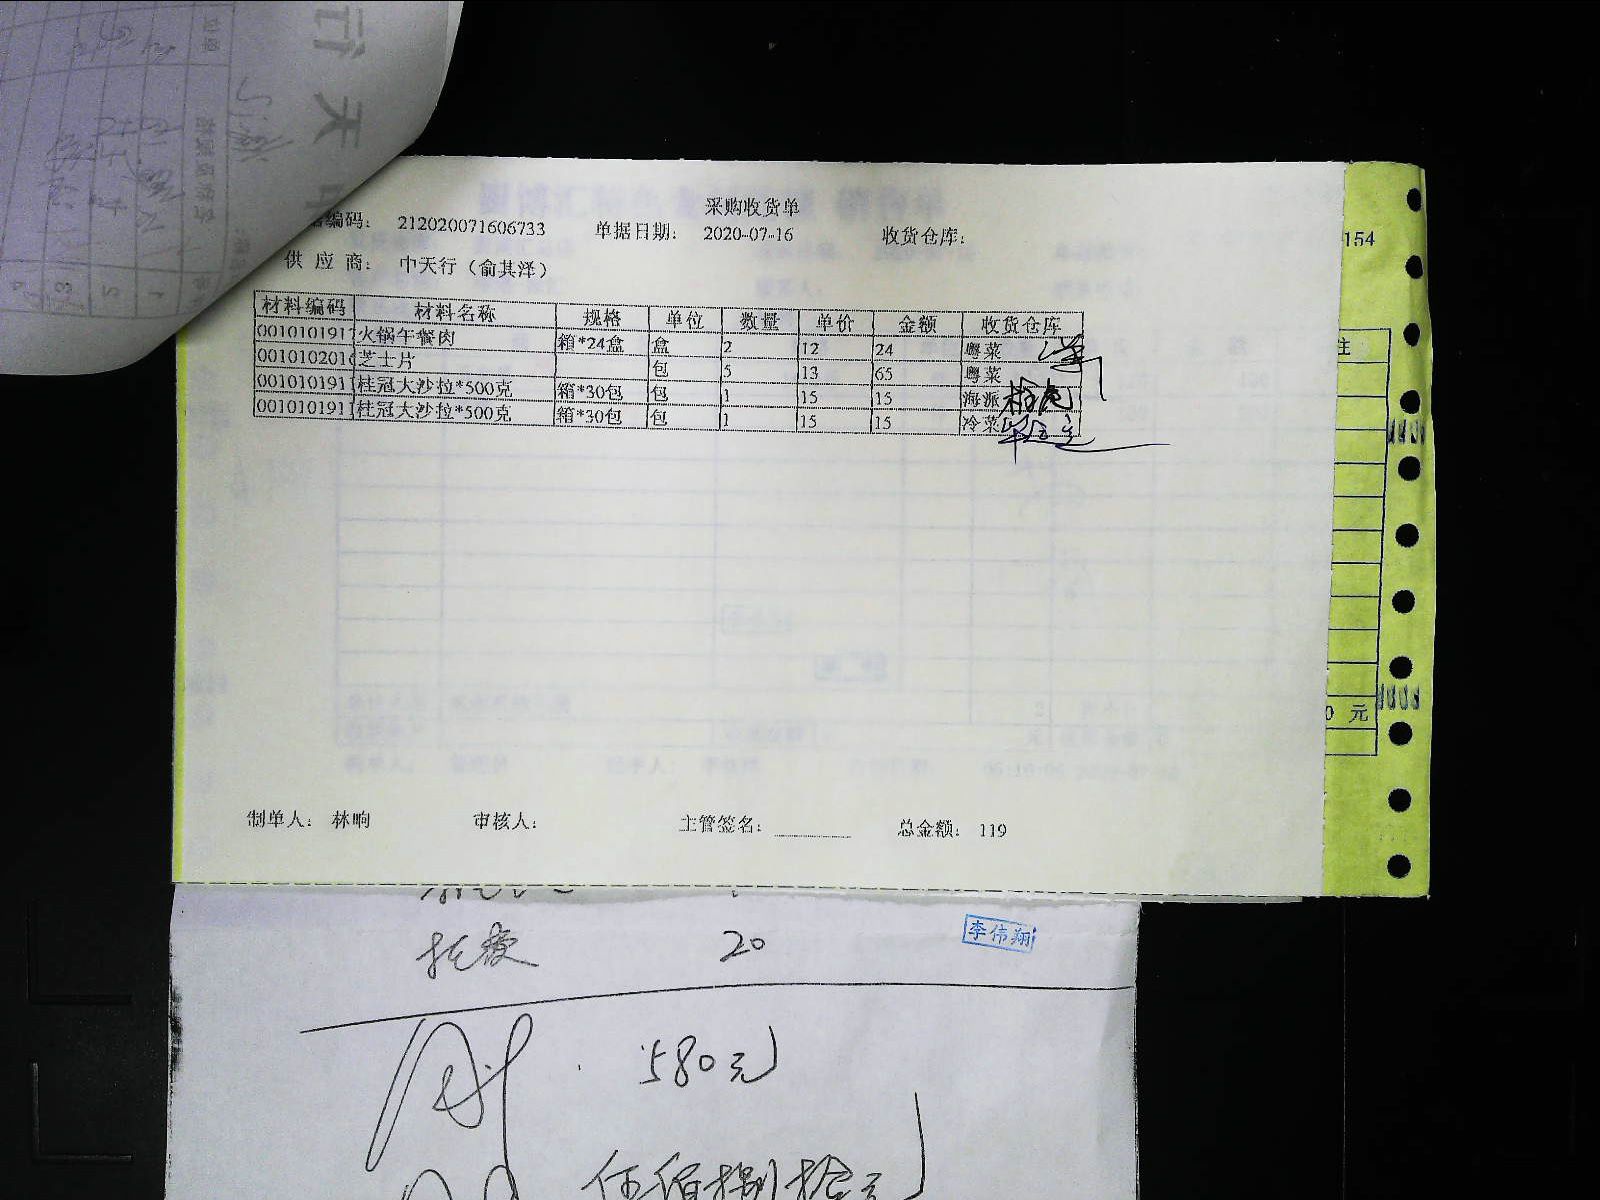 采购收货单
编码： 212020071606733 单据日期： 2020-07-16 收货仓库：
154
供 应 商： 中天行（俞其泽）
材料编码 材料名称 规格 单位 数量 单价 金额 收货仓库
0010101917 火锅午餐肉 箱*24盒 盒 2 12 24 粤菜
001010201 芝士片 包 5 13 65 粤菜
001010191 桂冠大沙拉*500克 箱*30包 包 1 15 15 海派
001010191 桂冠大沙拉*500克 箱*30包 包 1 15 15 冷菜
注
0 元
制单人： 林响 审核人： 主管签名： 总金额： 119
李伟翔
20
580元
伍佰捌拾元
行天